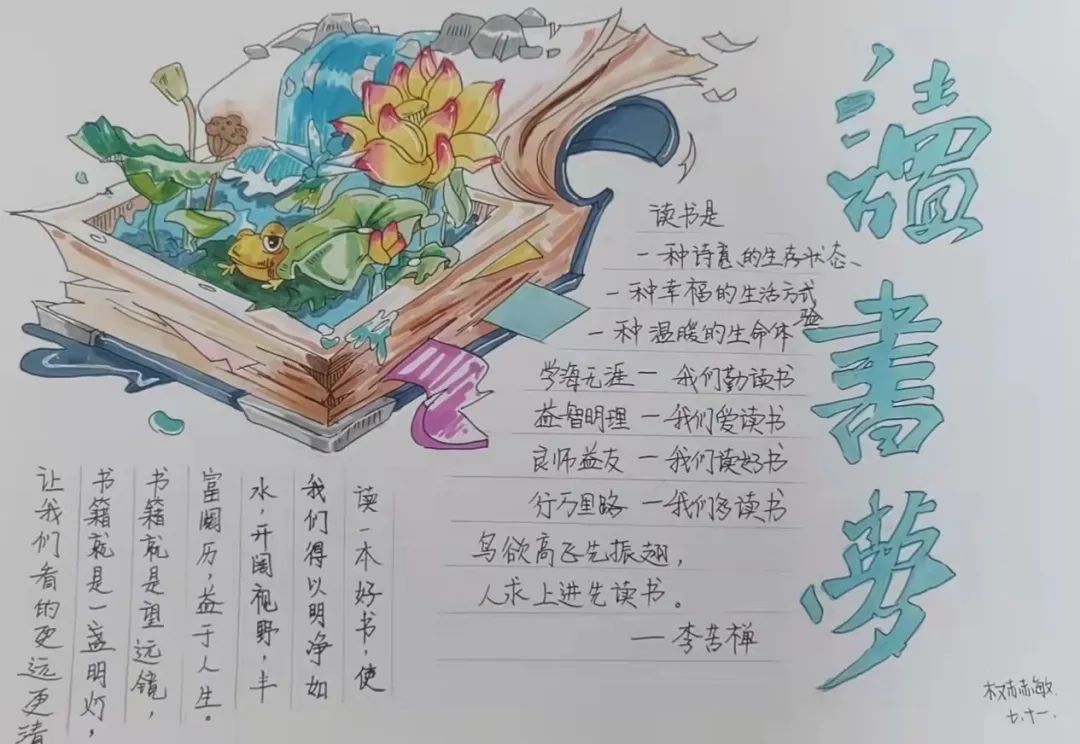 讀書夢
读书是
一种诗意的生存状态、
一种幸福的生活方式
一种温暖的生命体验
学海无涯一我们勤读书
益智明理一我们爱读书
良师益友一我们读好书
行万里路一我们多读书
鸟欲高飞先振翅，
人求上进先读书。
一李苦禅
读一本好书，使
我们得以明净如
水，开阔视野，丰
富阅历，益于人生。
书籍就是望远镜，
书籍就是一盏明灯，
让我们看的更远更清
权赫敏.
七.十一.